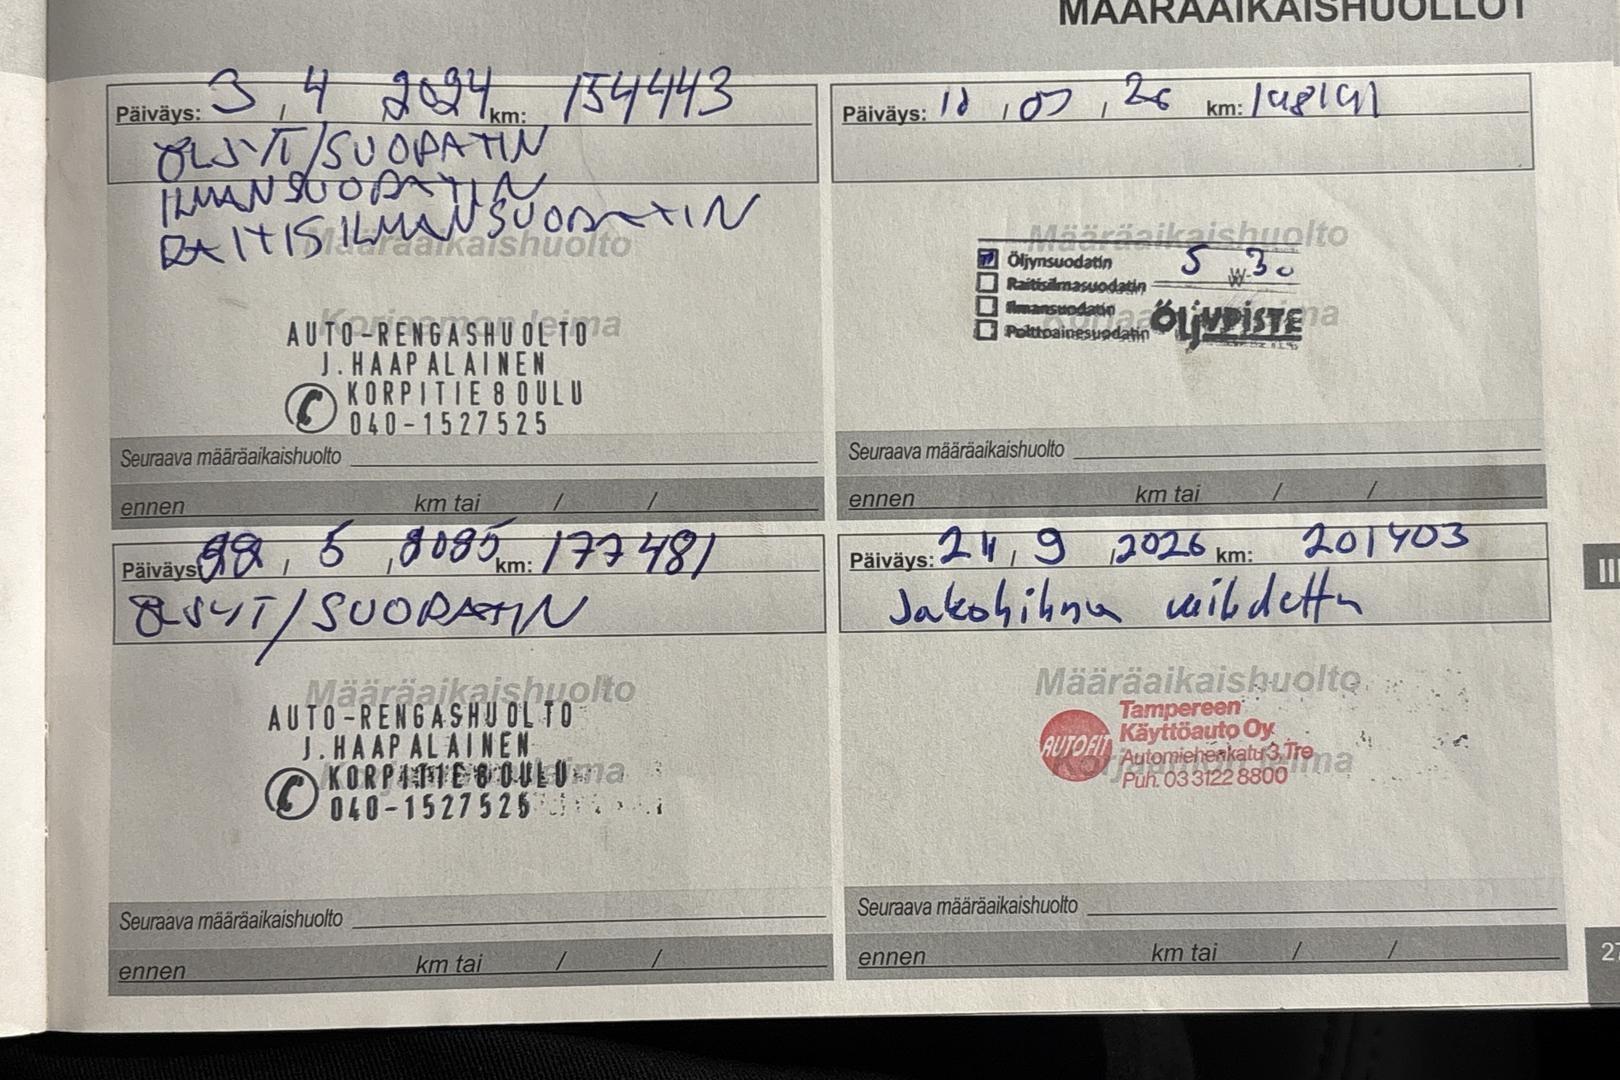 MÄÄRÄAIKAISHUOLLOT
Päiväys: 3 , 4 2024 km: 154443
ÖLJYT/SUODATIN
ILMANSUODATIN
RAITISILMANSUODATIN
Määräaikaishuolto
Korjaamon leima
AUTO-RENGASHUOLTO
J.HAAPALAINEN
KORPITIE 8 OULU
040-1527525
Seuraava määräaikaishuolto
ennen km tai / /
Päiväys: , , 26 km:
Määräaikaishuolto
Öljynsuodatin 5 W-30
Raitisilmasuodatin
Ilmansuodatin
Polttoainesuodatin ÖljyPISTE
Seuraava määräaikaishuolto
ennen km tai / /
Päiväys 22 , 5 , 2025 km: 177481
ÖLJYT/SUODATIN
Määräaikaishuolto
AUTO-RENGASHUOLTO
J.HAAPALAINEN
KORPITIE 8 OULU
040-1527525
Seuraava määräaikaishuolto
ennen km tai / /
Päiväys: , 9 , 2026 km: 201403
Jakohihna vaihdettu
Määräaikaishuolto
Korjaamon leima
AUTOFIT
Tampereen
Käyttöauto Oy
Automiehenkatu 3, Tre
Puh. 03 3122 8800
Seuraava määräaikaishuolto
ennen km tai / /
III
27